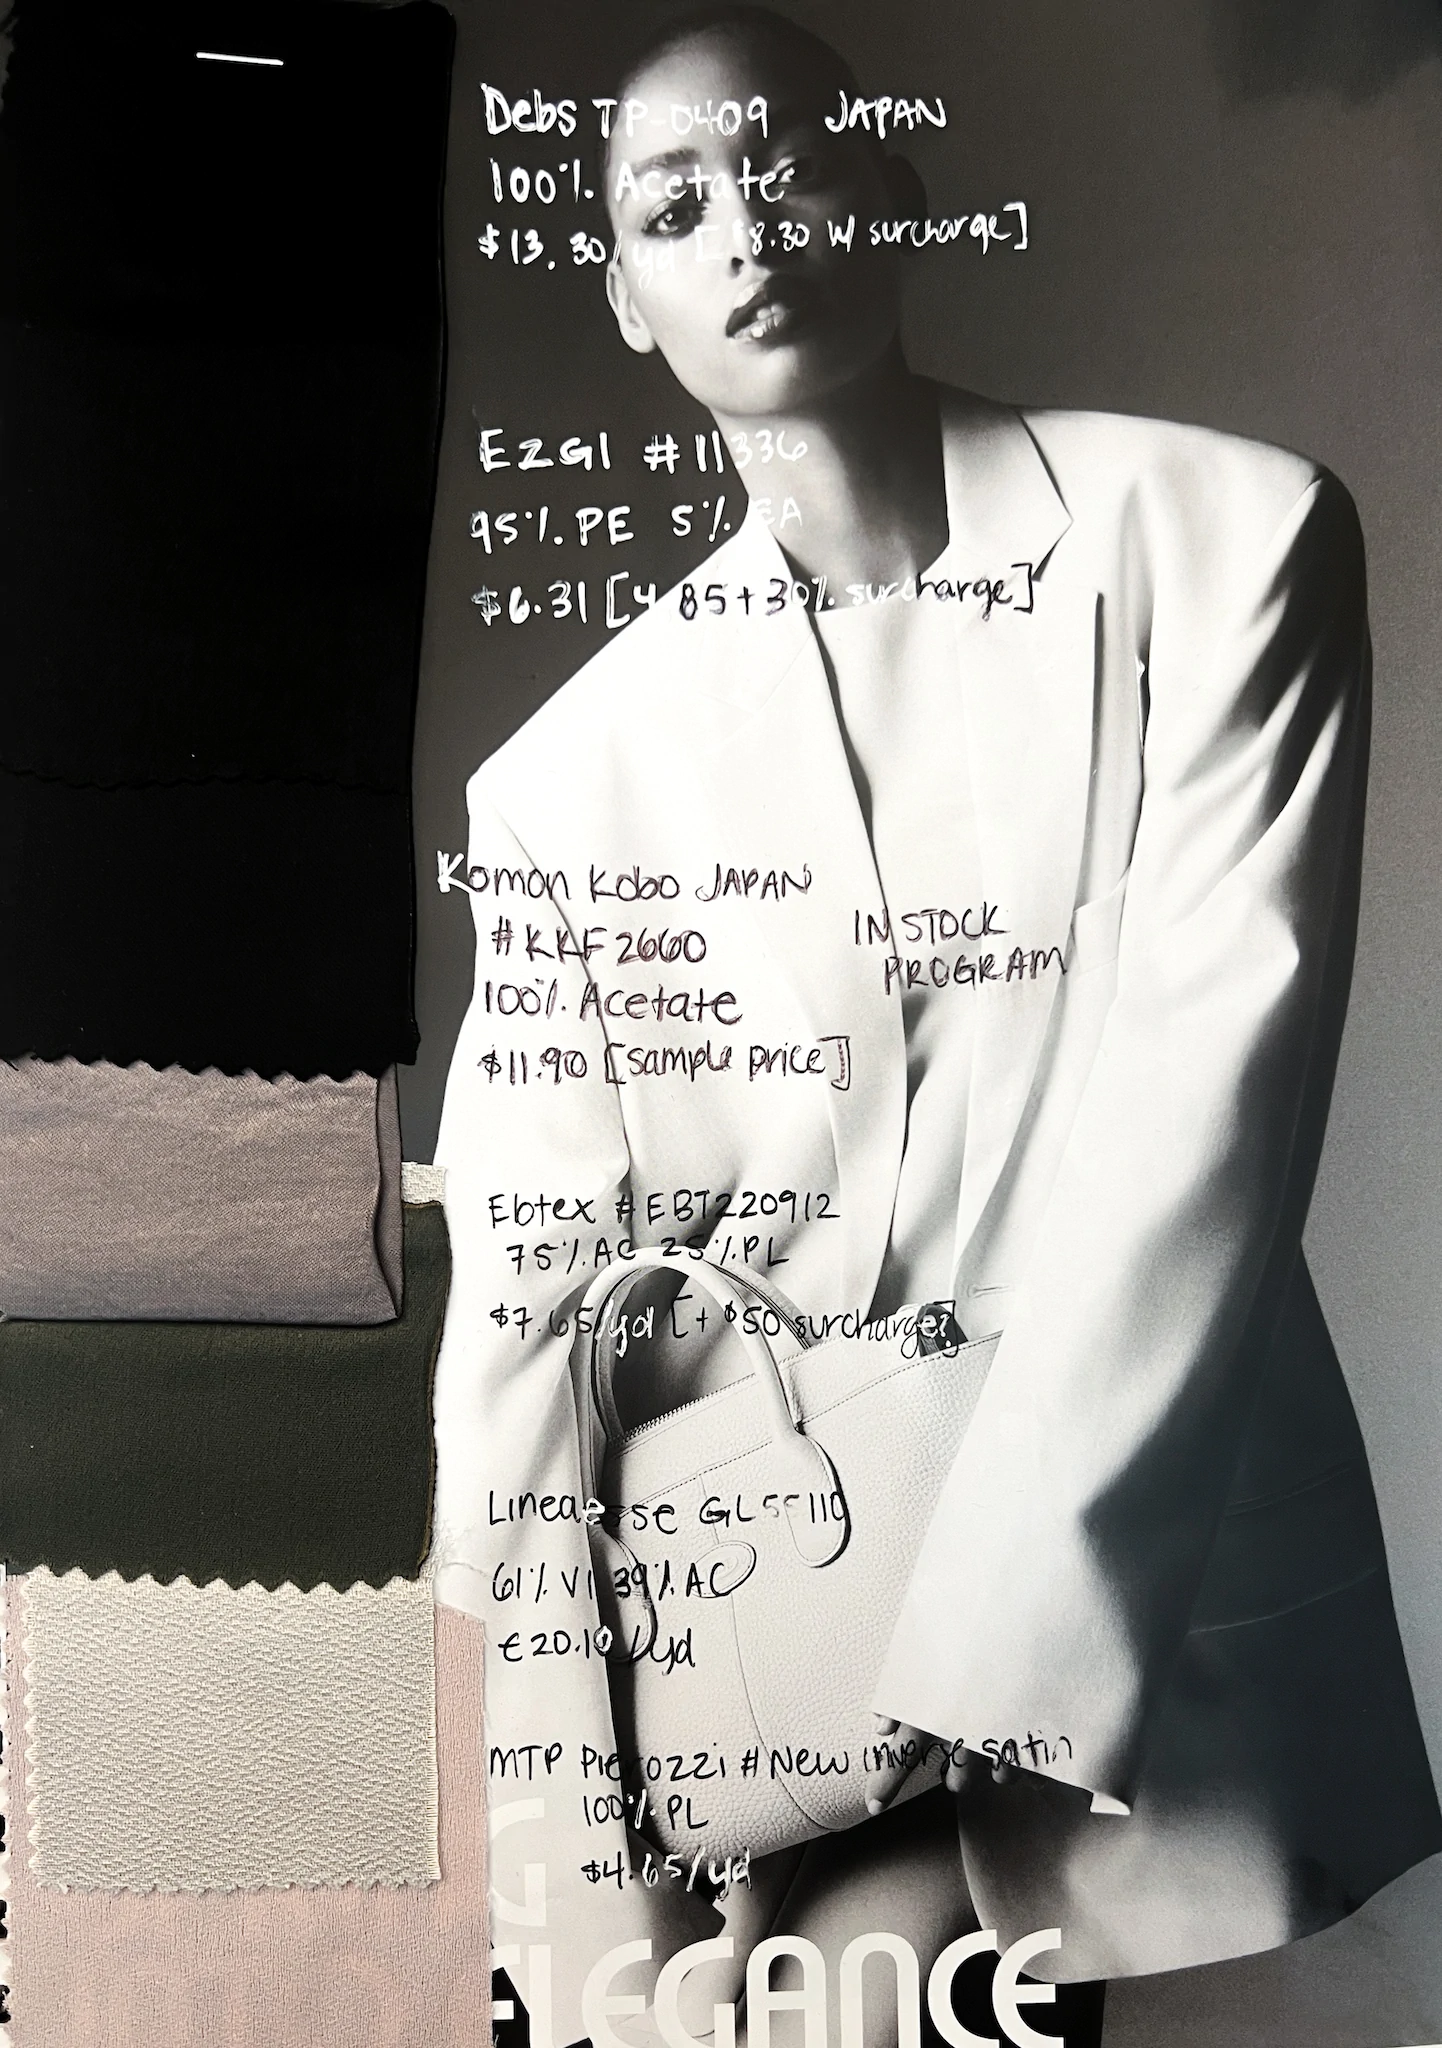 Debs TP-0409 JAPAN
100% Acetate
$13.30/yd [$8.30 w/ surcharge]
EZGI #11336
95% PE 5% EA
$6.31 [4.85+30% surcharge]
Komon Kobo JAPAN
#KKF2660
100% Acetate
$11.90 [sample price]
IN STOCK
PROGRAM
Ebtex #EBT220912
75% AC 25% PL
$7.65/yd [+ $50 surcharge?]
Lineaesse GL55110
61% VI 39% AC
€20.10/yd
MTP Pierozzi #New inverse satin
100% PL
$4.65/yd
G
ELEGANCE